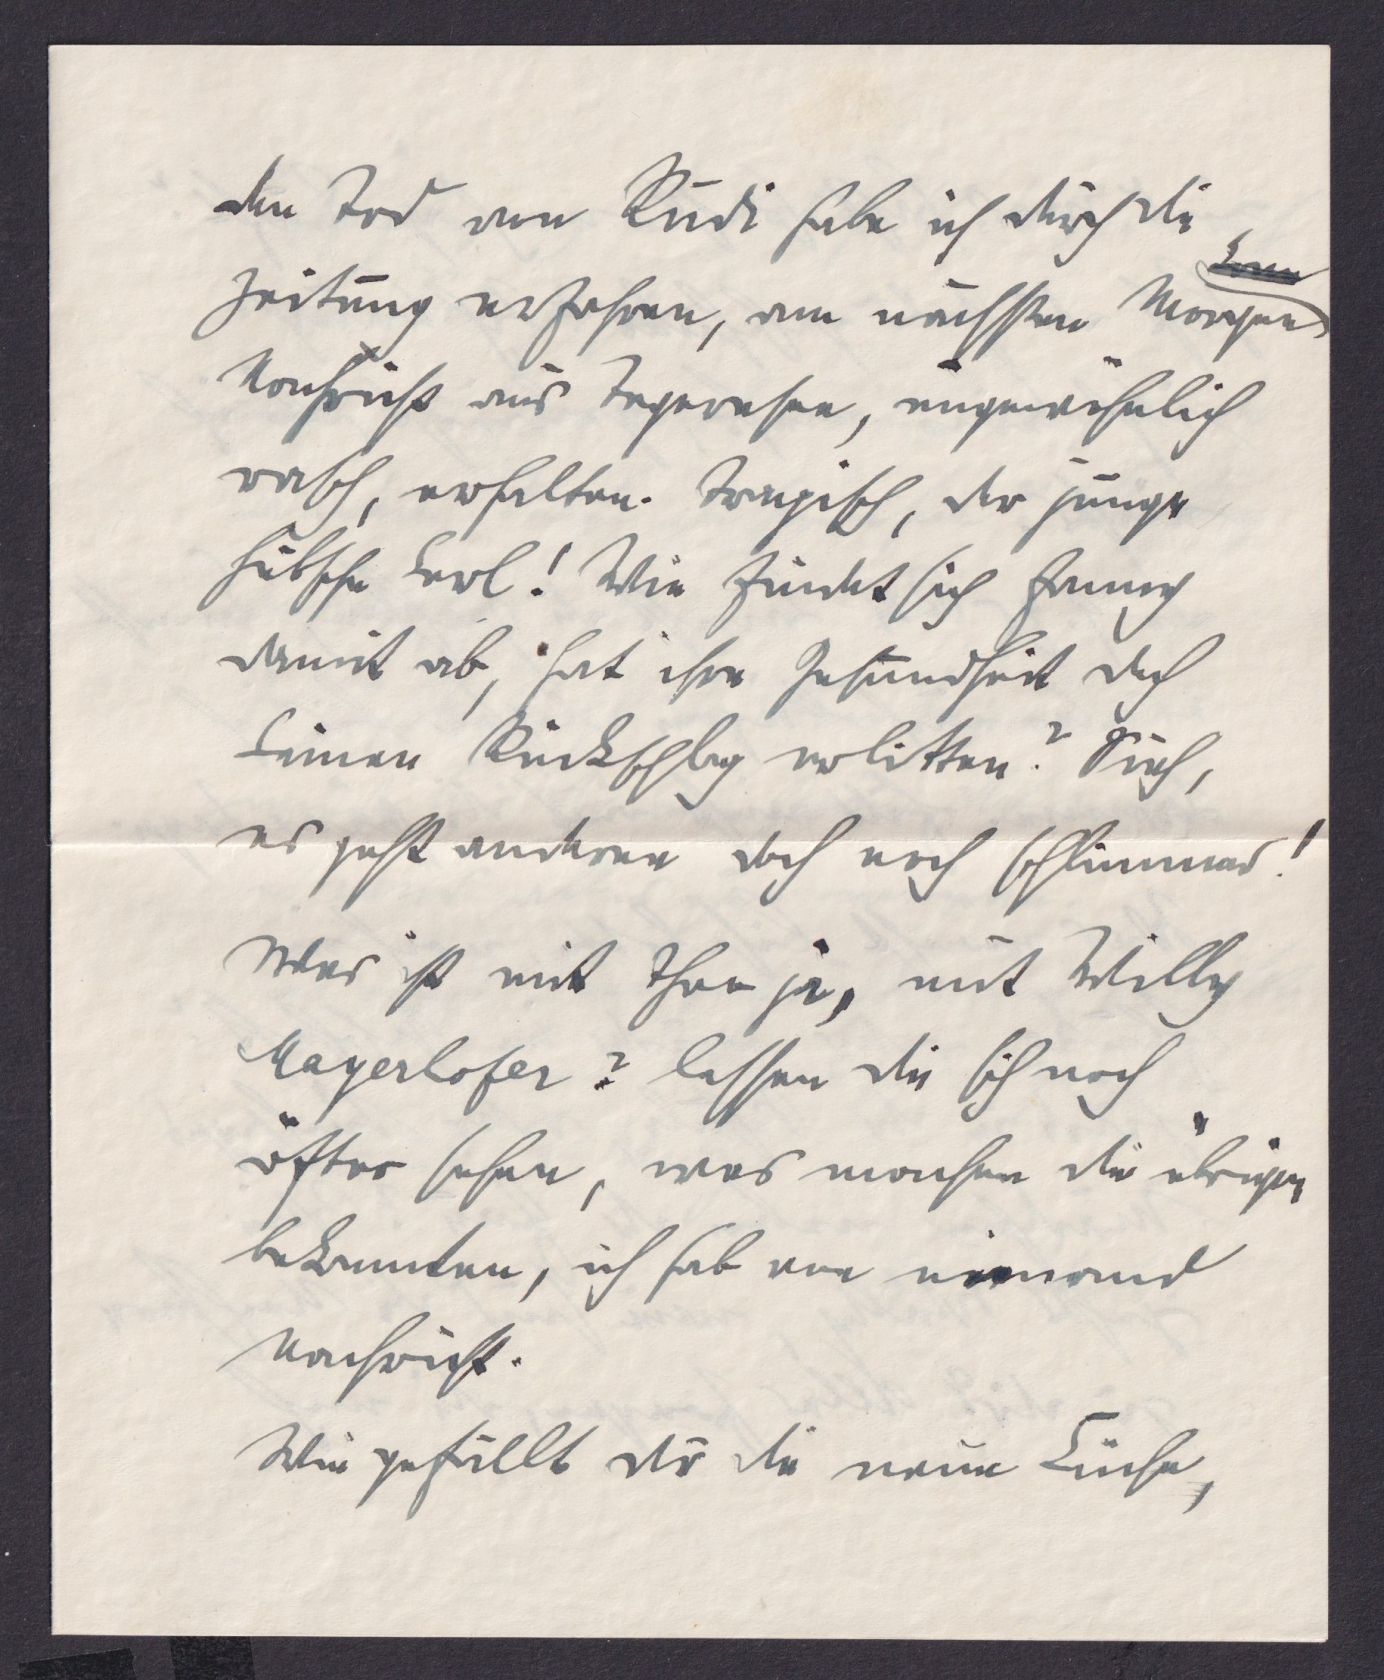 den Tod von Rudi habe ich durch die
Zeitung erfahren, am nächsten Morgen
Nachricht aus Tegernsee, ungewöhnlich
rasch, erhalten. Tragisch, der junge
hübsche Kerl! Wie findet sich Fanny
damit ab, hat ihre Gesundheit doch
keinen Rückschlag erlitten? Sieh,
es geht anderen doch noch schlimmer!
Was ist mit mit Willy
Mayerhofer? lassen die sich noch
öfter sehen, was machen die übrigen
bekannten, ich hab von niemand
Nachricht.
Wie gefällt dir die neue Küche,